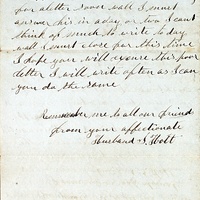 for a letter soon wall I must
answer this in a day or two I cant
think of much to write to day
wall I must close for this time
I hope your will excuse this poor
letter I will write often as I can
you do the same
Remember me to all our friend
from your affectionate
Husband S. Holt